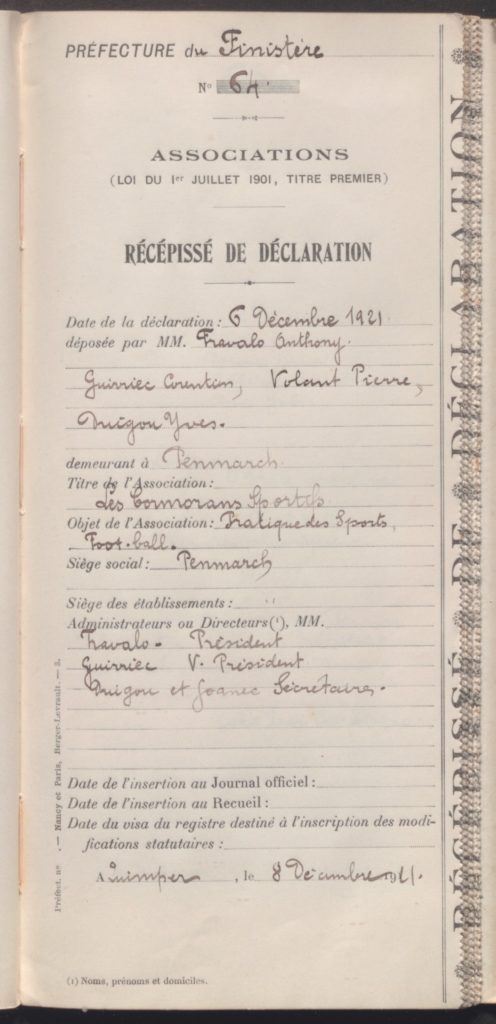 PRÉFECTURE du Finistère
N° 64.
ASSOCIATIONS
(LOI DU 1er JUILLET 1901, TITRE PREMIER)
RÉCÉPISSÉ DE DÉCLARATION
Date de la déclaration : 6 Décembre 1921.
déposée par MM. Travalo Anthony.
Guirriec Corentin, Volant Pierre,
Duigou Yves.
demeurant à Penmarch.
Titre de l'Association :
Les Cormorans Sportifs
Objet de l'Association : Pratique des Sports,
Foot-ball.
Siège social : Penmarch
Siège des établissements : "
Administrateurs ou Directeurs(1), MM.
Travalo - Président
Guirriec V. Président
Duigou et Joanec Secrétaires.
Date de l'insertion au Journal officiel :
Date de l'insertion au Recueil :
Date du visa du registre destiné à l'inscription des modi-
fications statutaires :
A Quimper, le 8 Décembre 1921.
(1) Noms, prénoms et domiciles.
Préfect. n° . — Nancy et Paris, Berger-Levrault. — 3.
RÉCÉPISSÉ DE DÉCLARATION